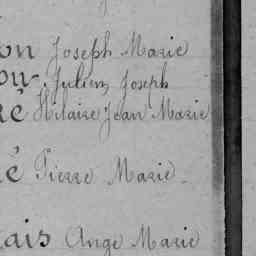 on Joseph Marie
ou Julien Joseph
ré Hilaire Jean Marie
é Pierre Marie
ais Ange Marie